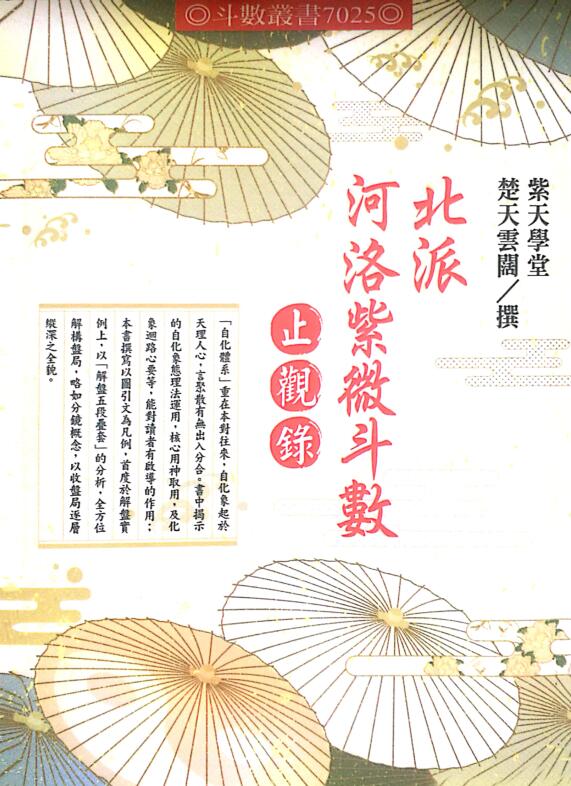 ◎斗數叢書7025◎
紫天學堂
楚天雲闊／撰
北派
河洛紫微斗數
止觀錄
「自化體系」重在本對往來，自化象起於
天理人心，言聚散有無出入分合。書中揭示
的自化象態理法運用，核心用神取用，及化
象迴路心要等，能對讀者有啟導的作用；
本書撰寫以圖引文為凡例，首度於解盤實
例上，以「解盤五段疊套」的分析，全方位
解構盤局，略如分鏡概念，以收盤局逐層
縱深之全貌。